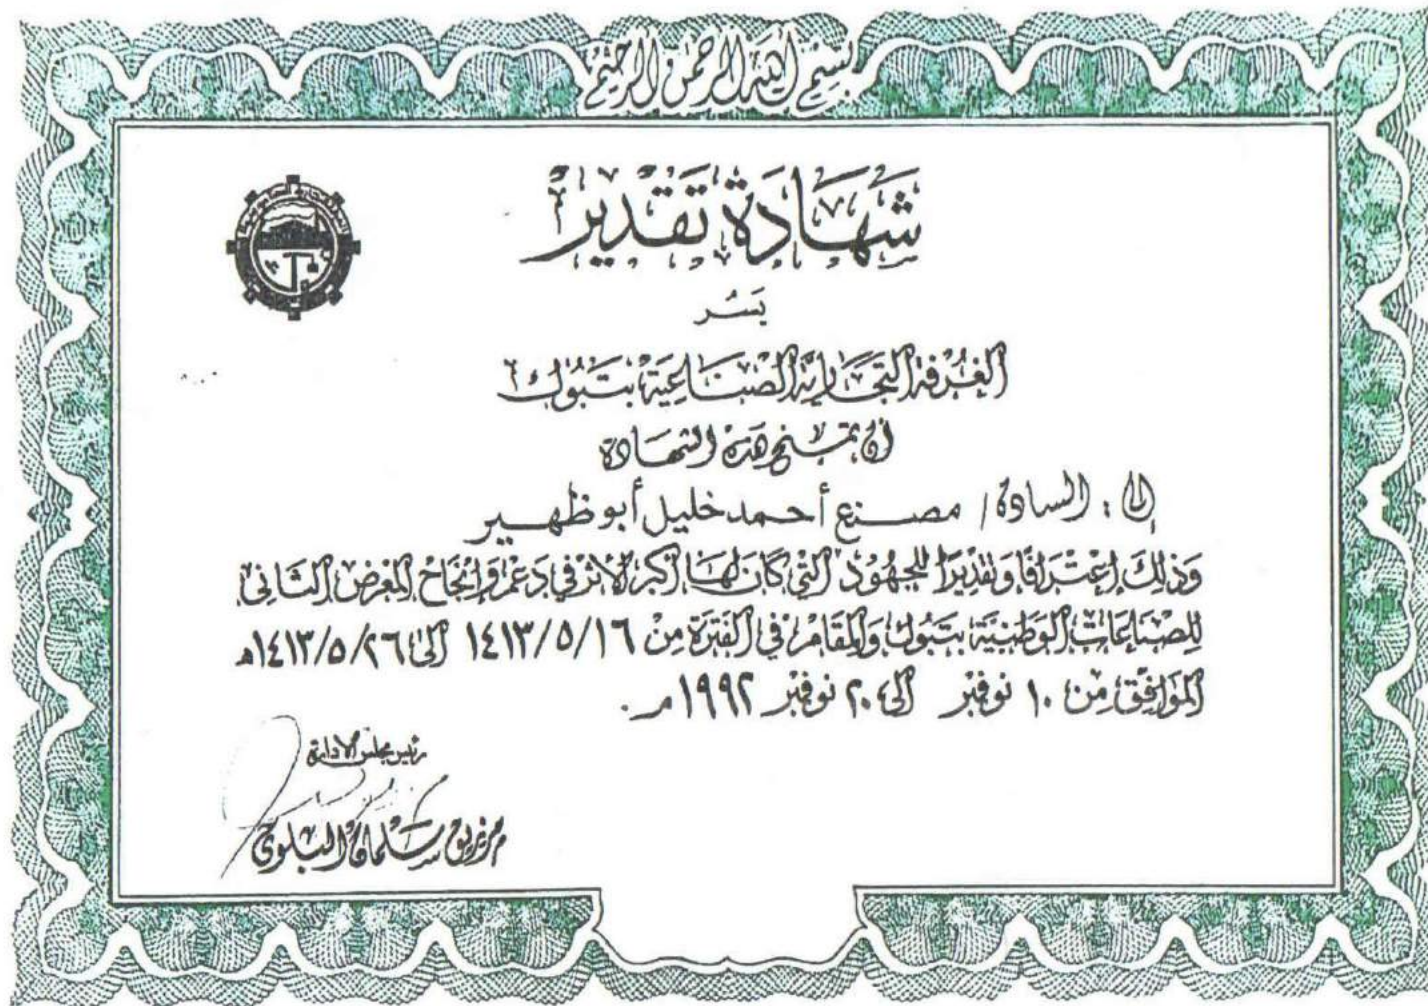 بسم الله الرحمن الرحيم
شهادة تقدير
يسر
الغرفة التجارية الصناعية بتبوك
أن تمنح هذه الشهادة
إلى : السادة / مصنع أحمد خليل أبو ظهير
وذلك إعترافًا وتقديرًا للجهود التي كان لها أكبر الأثر في دعم وإنجاح المعرض الثاني
للصناعات الوطنية بتبوك والمقام في الفترة من ١٤١٣/٥/١٦ الى ١٤١٣/٥/٢٦هـ
الموافق من ١٠ نوفمبر الى ٢٠ نوفمبر ١٩٩٢م.
رئيس مجلس الادارة
مرزيق سلمان البلوي